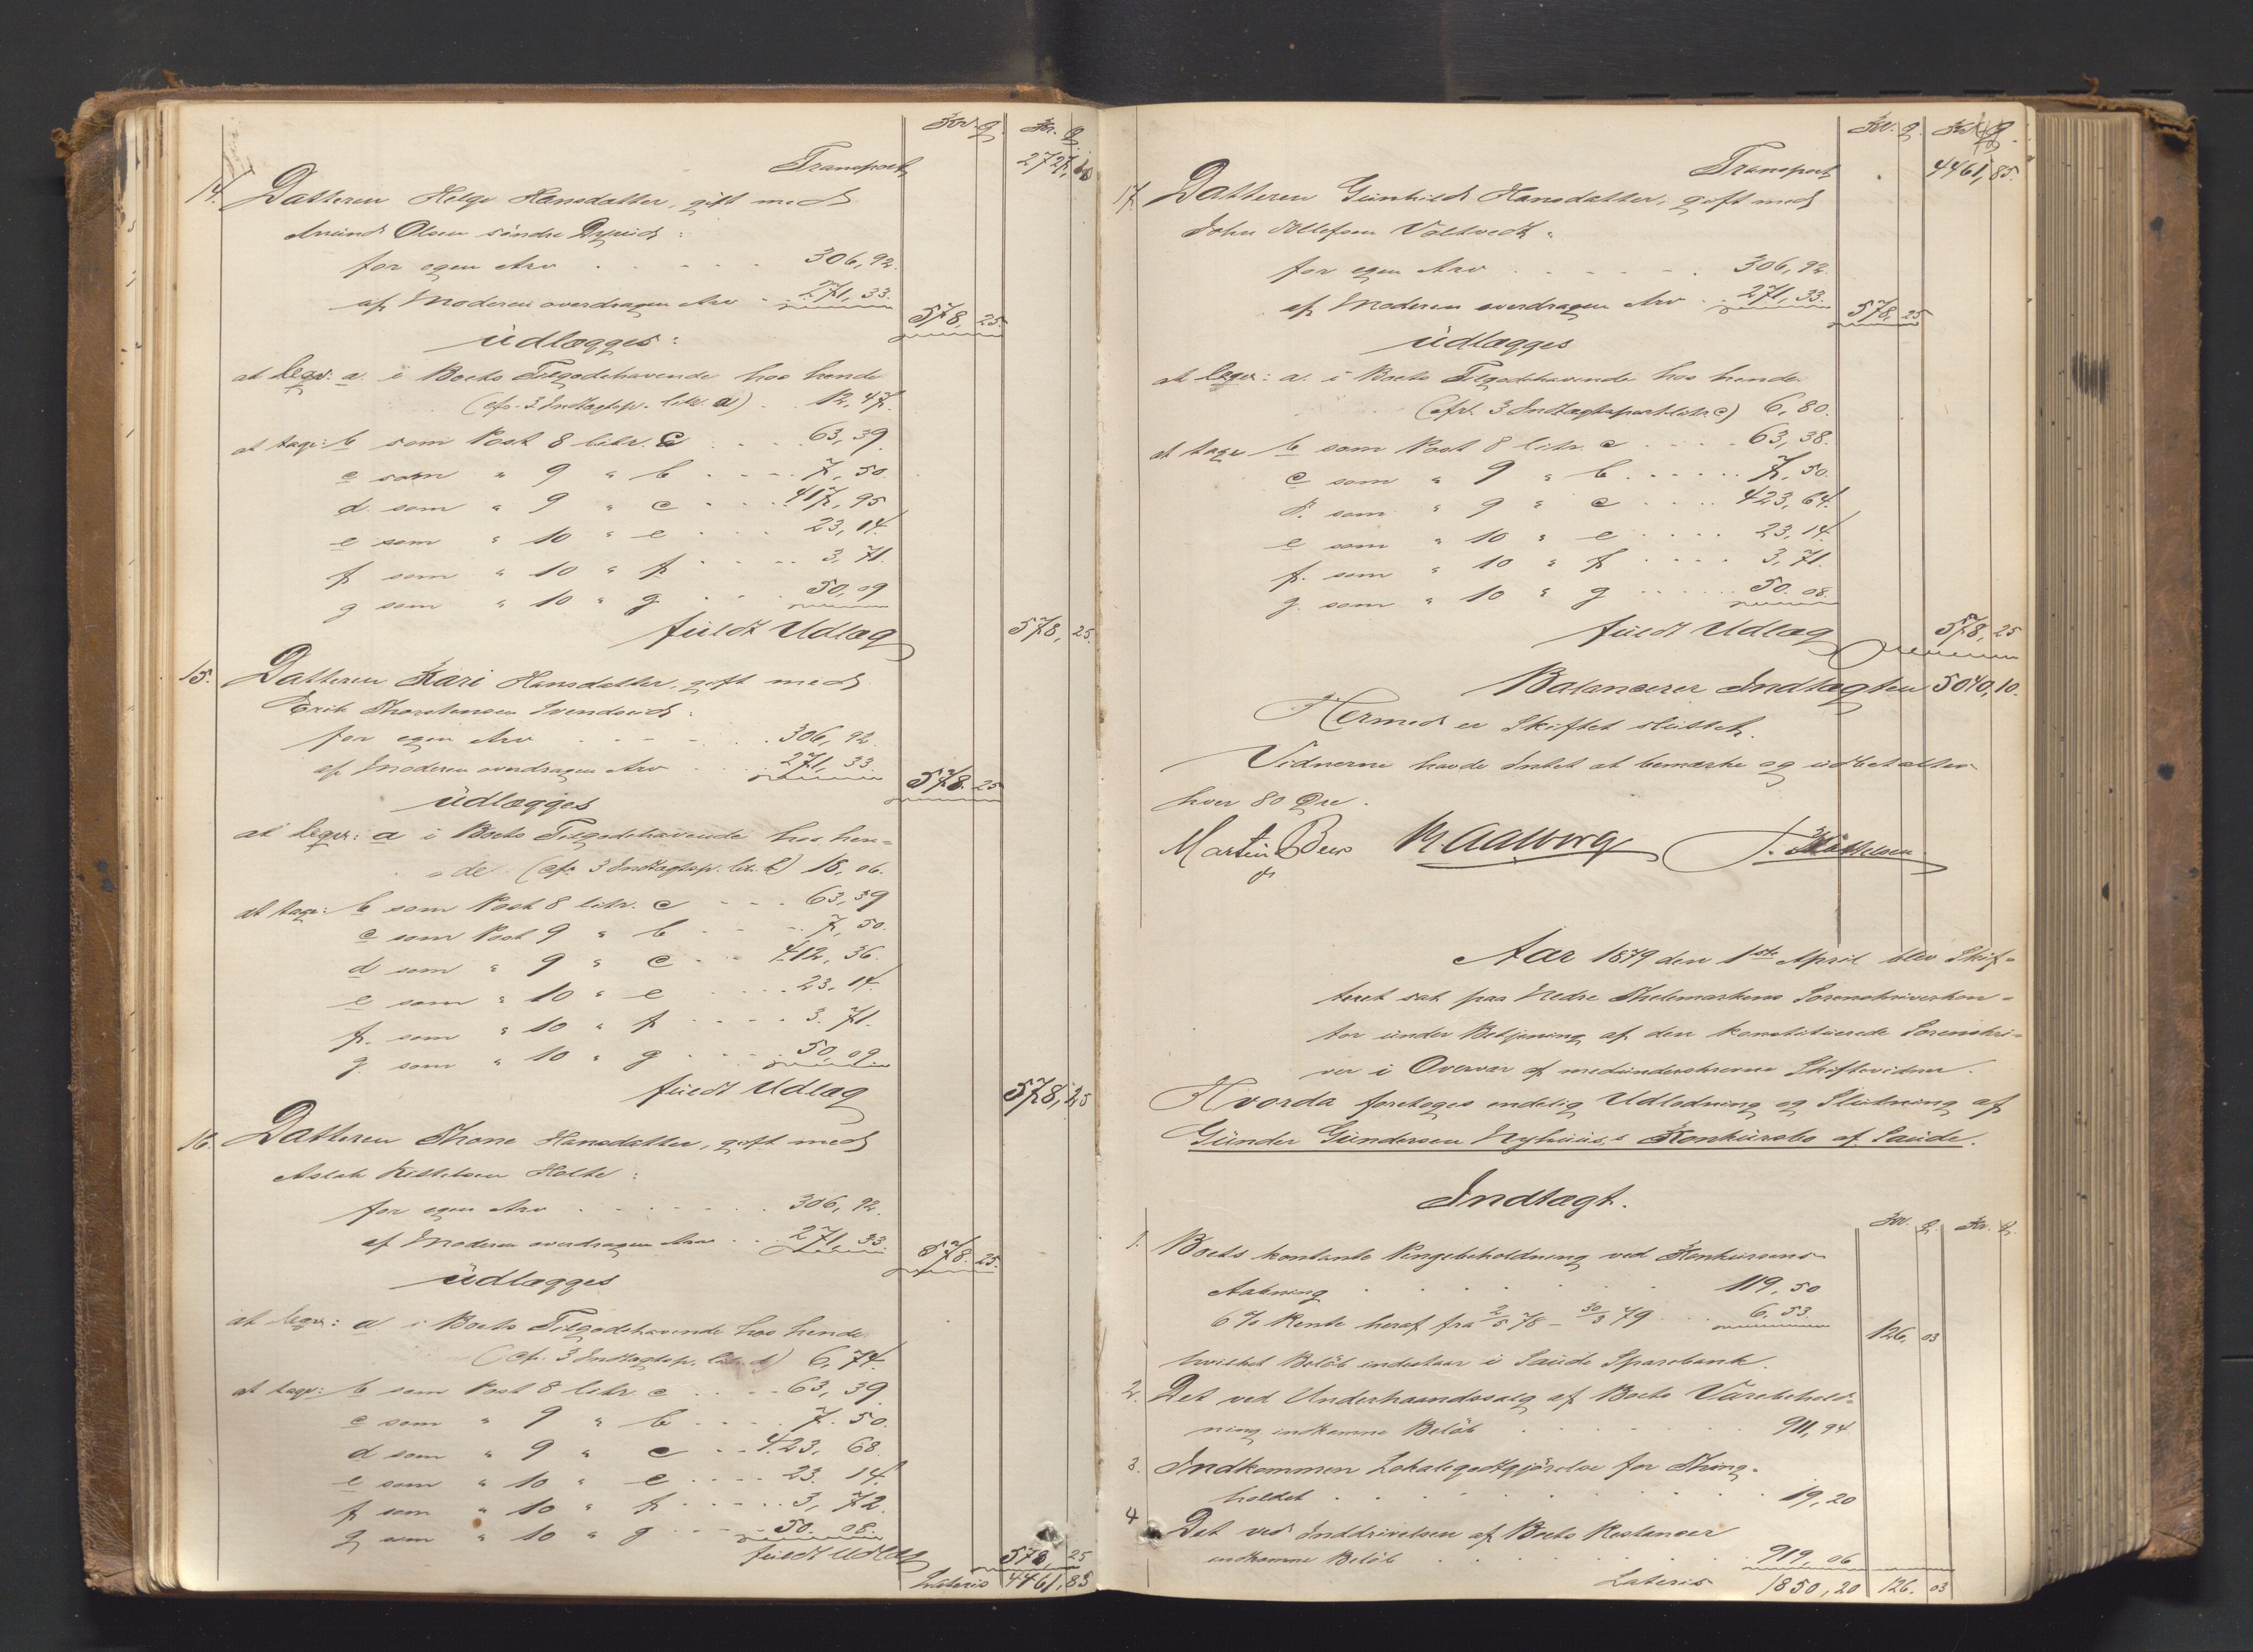 Kr. Ø. Kr. Ø.
Transport 2727,10
14. Datteren Helge Hansdatter, gift med
Amund Olsen søndre
for egen Arv 306,92.
af Moderen overdragen Arv 271,33. 578, 25.
üdlægges:
at legv: a. i Boets Tilgodehavende hos hende
(cfr. 3 Indtægtsp. litr. a) 12,47.
at tage: b som Post 8 litr. c 63,39.
c som " 9 " b 7,50.
d som " 9 " c 417,95
e som " 10 " e 23,14.
f som " 10 " f 3,71.
g som " 10 " g 50,09
füldt Udlæg 578, 25.
15. Datteren Kari Hansdatter, gift med
Erik Thorstensen Svendseid:
for egen Arv 306,92.
af Moderen overdragen Arv 271,33. 578. 25
üdlægges
at legv: a i Boets Tilgodehavende hos hen-
de (cfr. 3 Indtægtsp. litr. b) 18,06.
at tage: b som Post 8 litr. c 63,39
c som Post 9 " b 7,50.
d som " 9 " c 412,36.
e som " 10 " e 23,14.
f. som " 10 " f 3.71.
g. som " 10 " g 50,09
füldt Udlæg 578,25
16. Datteren Thone Hansdatter, gift med
Aslak Kittelsen Holte:
for egen Arv 306,92.
af Moderen overdragen Arv 271,33 578. 25.
üdlægges
at legv: a i Boets Tilgodehavende hos hende
(cfr. 3 Indtægtsp. litr. d) 6,74.
at tage: b som Post 8 litr. c 63,39
c som " 9 " b 7.50.
d som " 9 " c 423,68.
e som " 10 " e 23.14.
f som " 10 " f 3,72.
g som " 10 " g 50.08.
füldt Udlæg 578, 25
Lateris 4461,85
Kr. Ø. Kr. Ø.
Transport 4461,85.
17. Datteren Günhild Hansdatter, gift med
John Tollefsen Valtvedt:
for egen Arv 306,92.
af Moderen overdragen Arv 271,33. 578, 25
üdlægges
at legv: a. i Boets Tilgodehavende hos hende
(cfr. 3 Indtægtspost litr. c) 6,80.
at tage b som Post 8 litr. c 63,38.
c som " 9 " b 7,50.
d. som " 9 " c 423,64.
e som " 10 " e 23,14.
f. som " 10 " f 3,71.
g. som " 10 " g 50.08.
füldt Udlæg 578, 25
Balancerer Indtægten 5040,10.
Hermed er Skiftet slüttet.
Vidnerne havde Intet at bemærke og üdbetaltes
hver 80 Øre.
Martin Beer Aalborg
Aar 1879 den 1ste April blev Skif-
teret sat paa Nedre Thelemarkens Sorenskriverkon-
tor ünder Betjening af den konstitüerede Sorenskri-
ver i Overvær af medünderskrevne Skiftevidner.
Hvorda foretoges endelig Udlodning og Slütning af
Günder Gündersen Nyhüüs,s Konkürsbo af Saüde.
Indtægt.
Kr. Ø. Kr. Ø.
1. Boets kontante Pengebeholdning ved Konkürsens
Aabning 119,50
6% Rente heraf fra 2/5 78 - 30/3 79 6,53. 126, 03
hvilket Beløb indestaar i Saüde Sparebank.
2. Det ved Underhaandssalg af Boets Varebehold-
ning indkomne Beløb 911,94
3. Indkommen Lokalegodtgjørelse for Thing-
holdet 19,20
4 Det ved Inddrivelsen af Boets Restancer
indkomne Beløb 919,06
Lateris 1850,20 126. 03